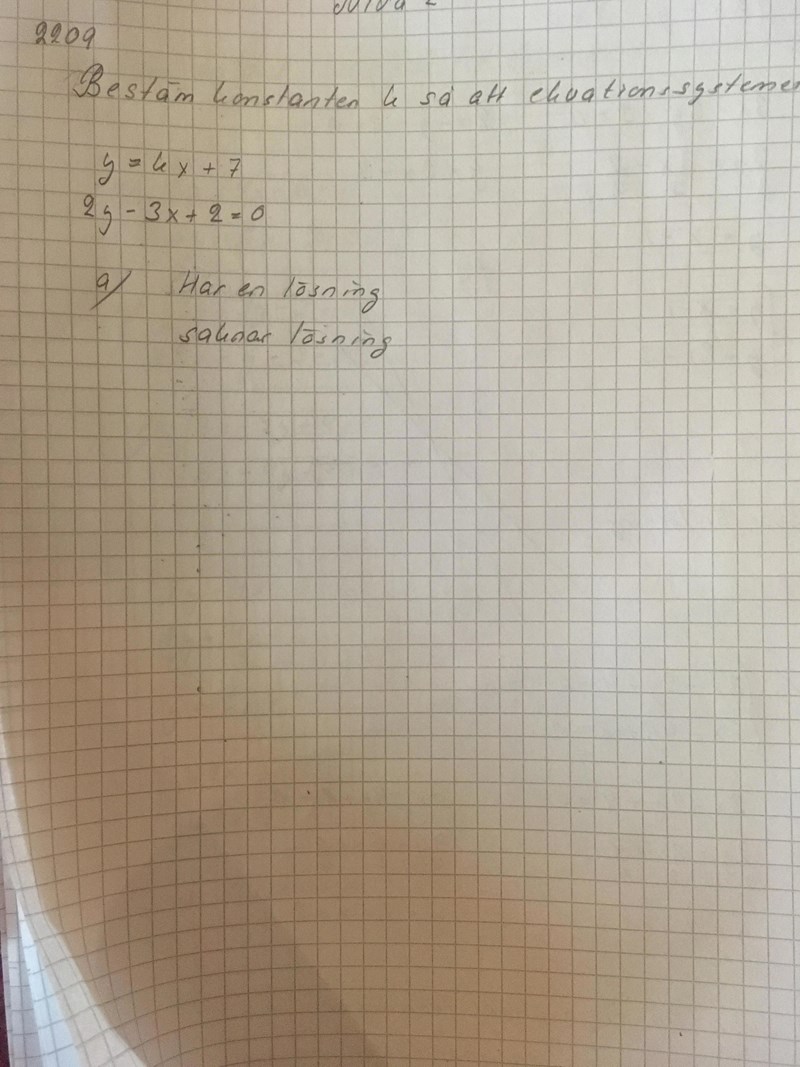 2209
Bestäm konstanten k så att ekvationssysteme
y = kx + 7
2y - 3x + 2 = 0
a) Har en lösning
saknar lösning